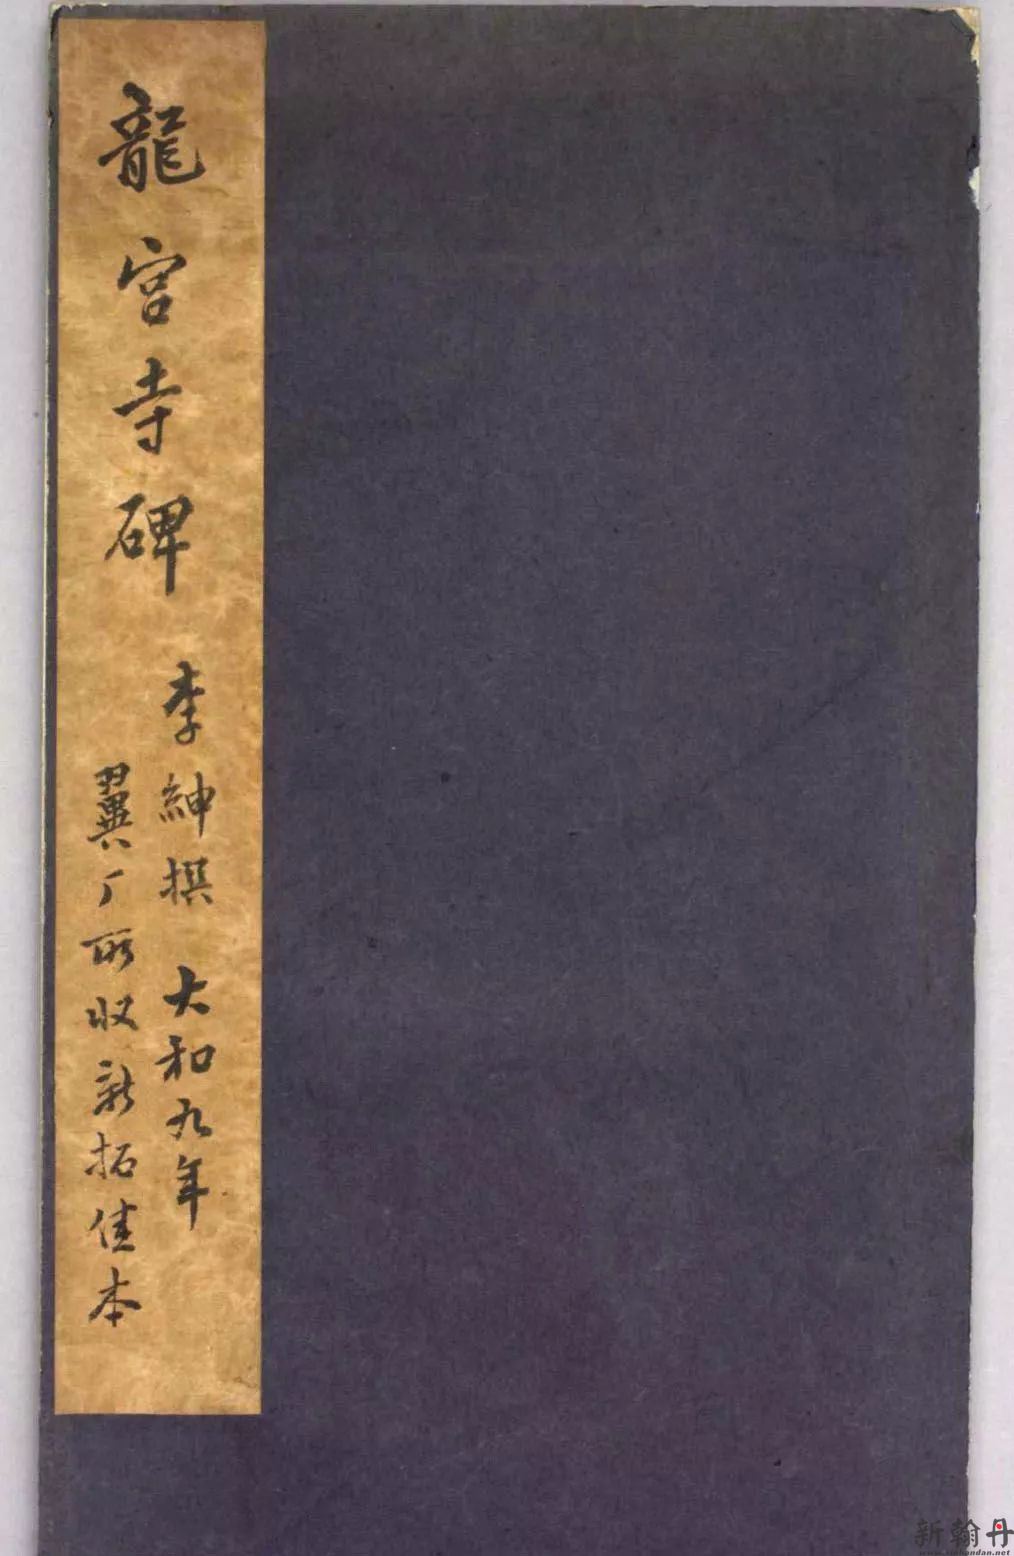 龍宮寺碑
李紳撰 大和九年
翼厂所收新拓佳本
新翰丹